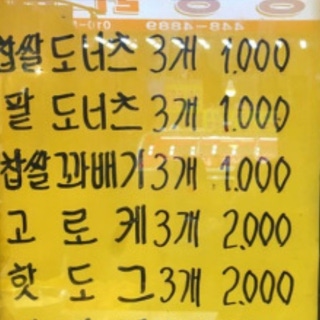 찹쌀도너츠 3개 1.000
팥 도너츠 3개 1.000
찹쌀꽈배기 3개 1.000
고 로 케 3개 2.000
핫 도 그 3개 2.000